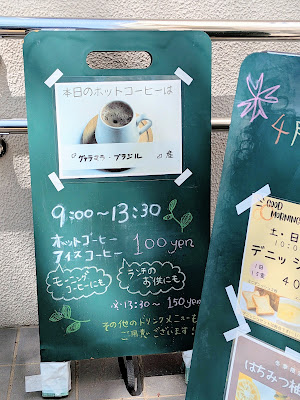 本日のホットコーヒーは
グァテマラ・ブラジル の 豆
9:00〜13:30
ホットコーヒー
アイスコーヒー 100yen
モーニング
コーヒーにも
ランチの
お供にも
※13:30〜 150yen
その他のドリンクメニューも
ご用意ございます!
4月
GOOD
MORNING
土・日
10:0
デニッシ
1日
40
はちみつ柚